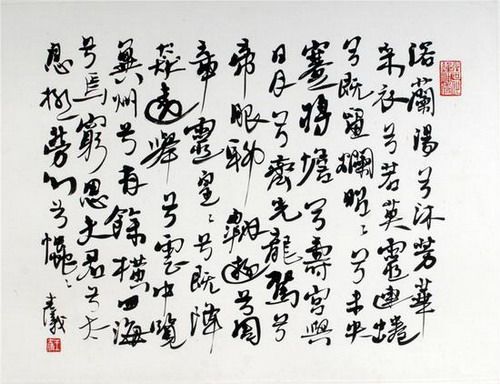 浴蘭湯兮沐芳華
采衣兮若英靈連蜷
兮既留爛昭〻兮未央
蹇將憺兮壽宮與
日月兮齊光龍駕兮
帝服聊翱遊兮周
章靈皇〻兮既降
猋遠舉兮雲中覽
冀州兮有餘橫四海
兮焉窮思夫君兮太
息極勞心兮𢥞〻